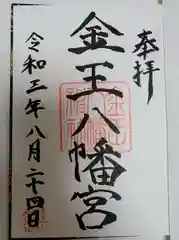 奉拝
金王八幡宮
令和三年八月二十四日